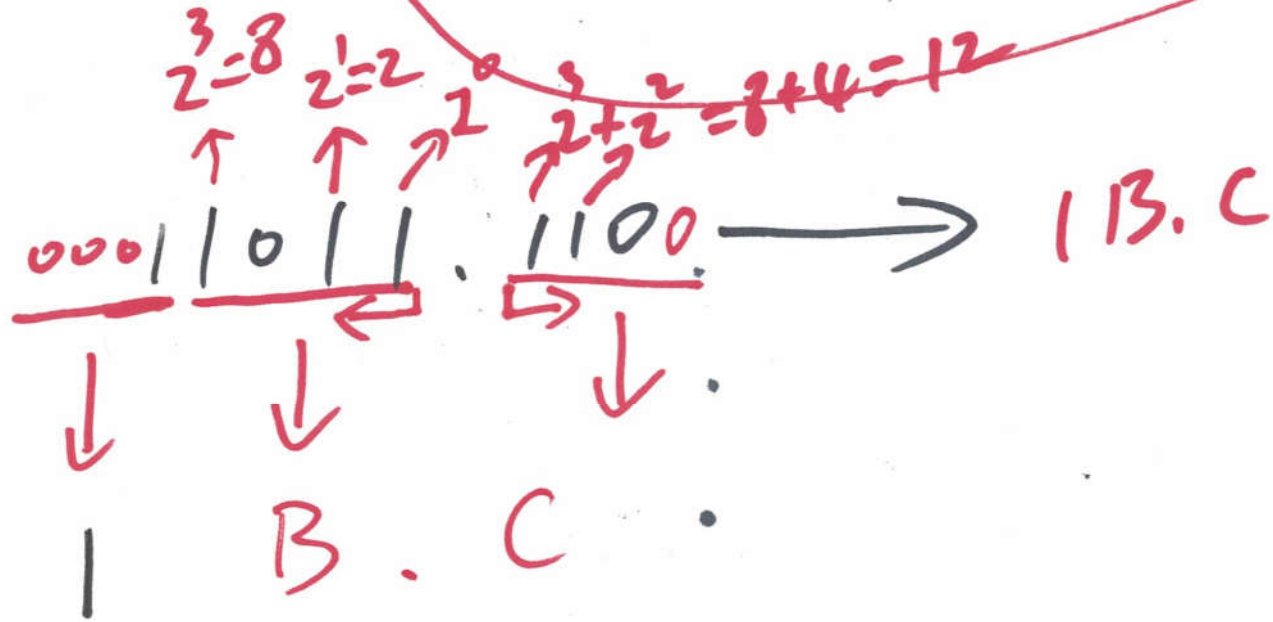 2³=8 2¹=2 2⁰ 2³+2²=8+4=12
00011011.1100 → 1B.C
1 B . C